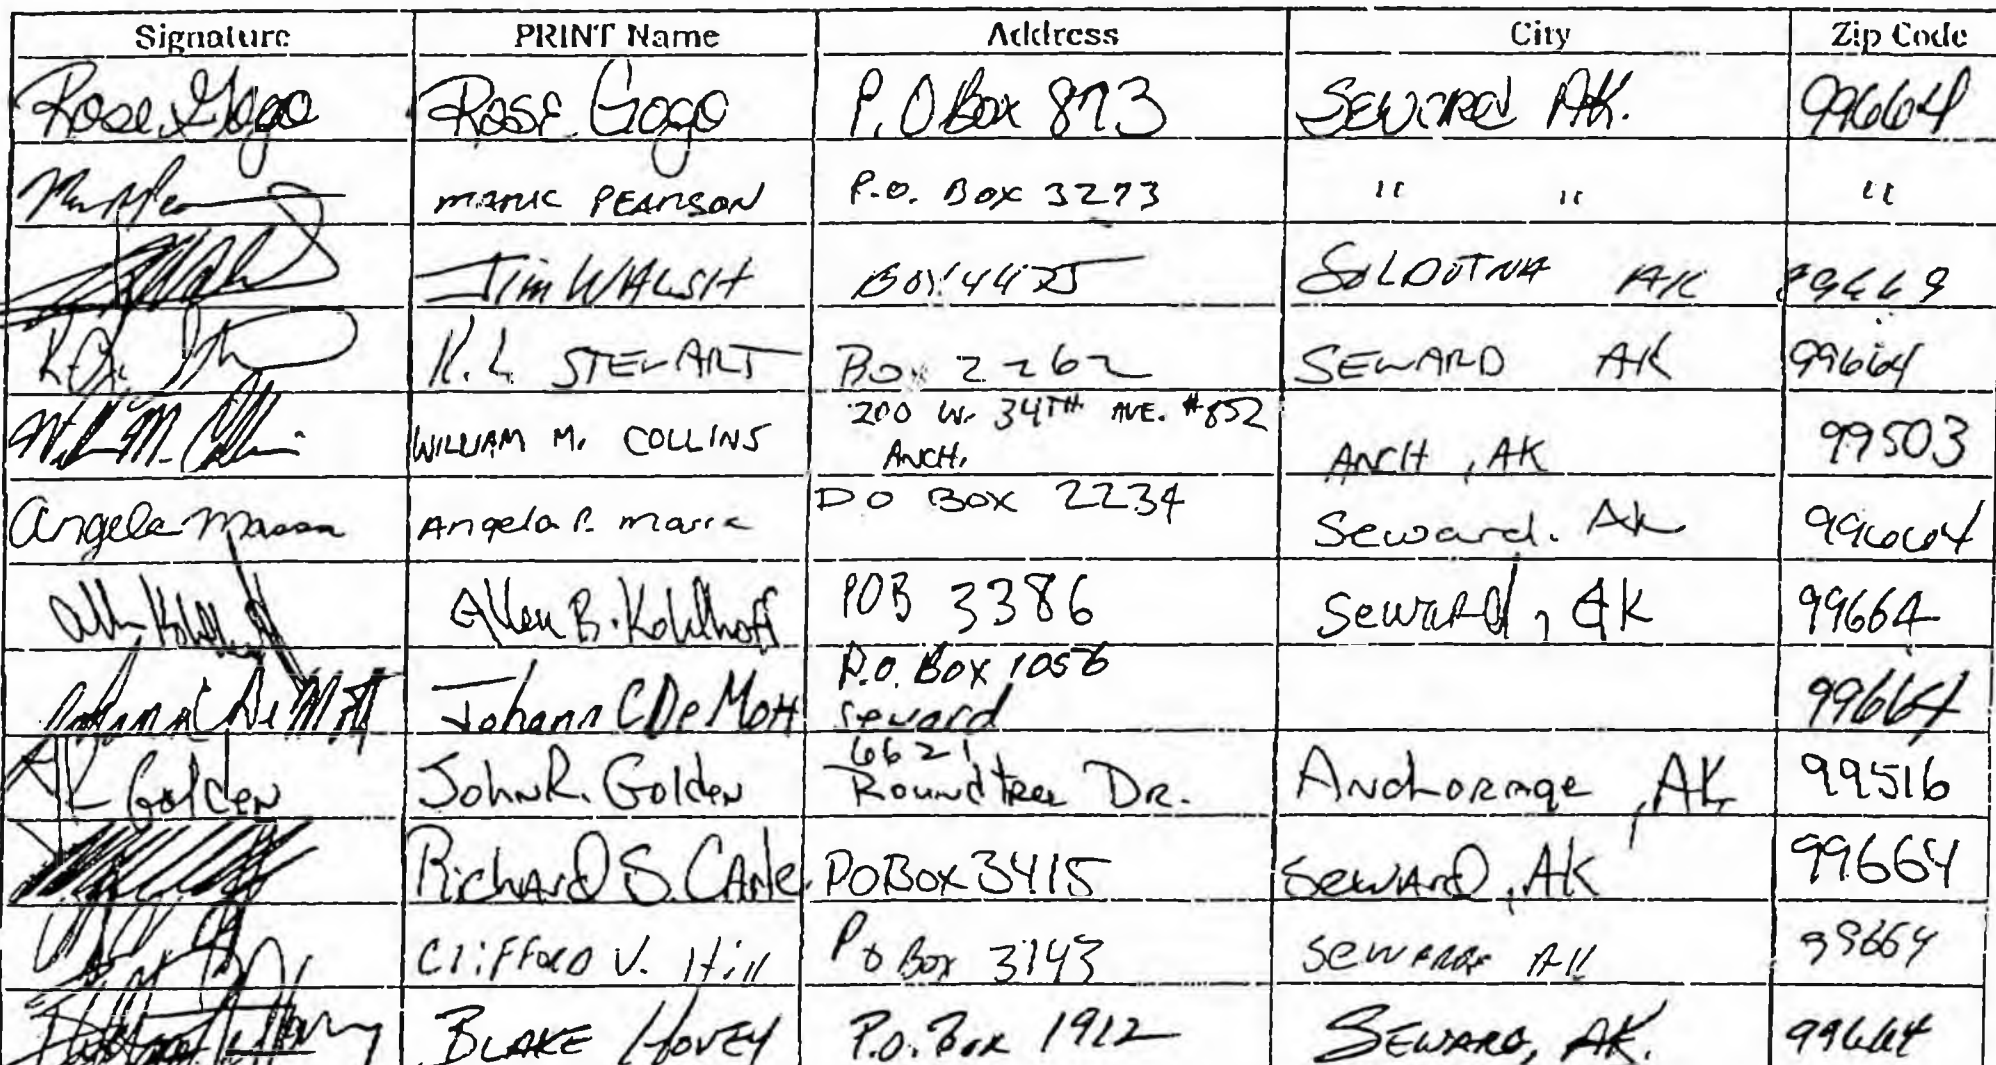 Signature PRINT Name Address City Zip Code
Rose Gogo Rose Gogo P.O Box 873 Seward AK. 99664
MARK PEARSON P.O. Box 3273 " " "
Jim WALSH BOX 4425 SOLDOTNA AK 99669
K.L. STEWART Box 2262 SEWARD AK 99664
200 W. 34TH AVE. #852
WILLIAM M. COLLINS ANCH. ANCH, AK 99503
Angela Angela PO BOX 2234 Seward. AK 99664
Allen B. Kohlhoff POB 3386 Seward, AK 99664
P.O. Box 1056
Johann C DeMott Johann C DeMott Seward 99664
6621
JR Golden John R. Golden Roundtree DR. Anchorage, AK 99516
Richard S. Carle PO Box 3415 Seward, AK 99664
Clifford V. Hill PO Box 3143 Seward AK 99664
BLAKE HOVEY P.O. Box 1912 SEWARD, AK. 99664